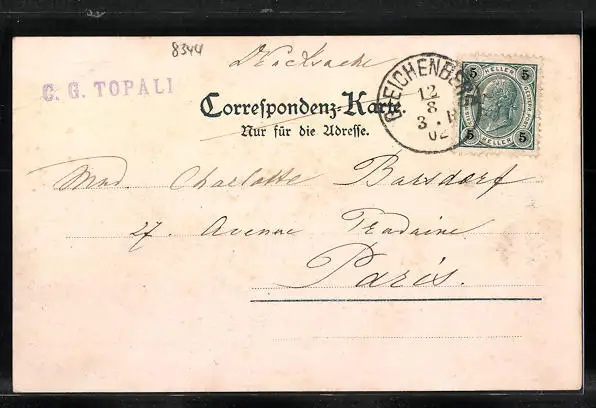 8344
Drucksache
C. G. TOPALI
Correspondenz-Karte.
Nur für die Adresse.
GLEICHENBERG
12
8
3
02
5 HELLER 5
5 HELLER 5
Mad. Charlotte Barsdorf
27. Avenue Trudaine
Paris.